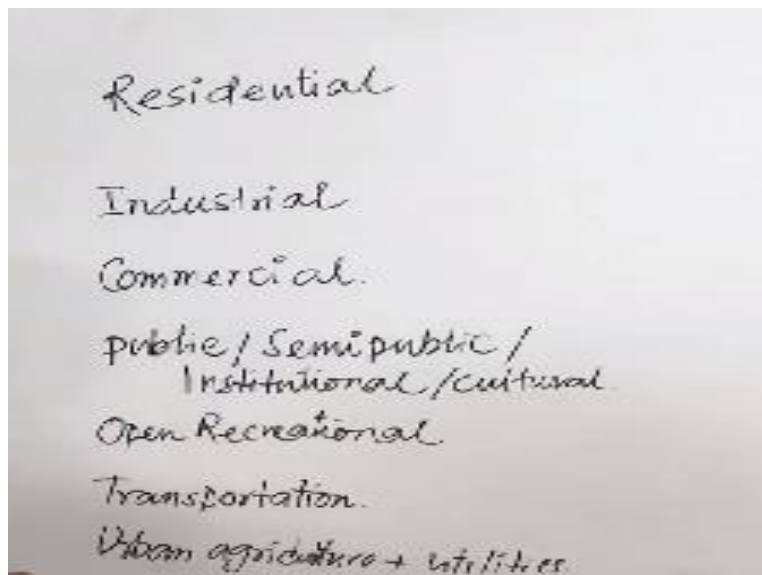 Residential
Industrial
Commercial.
public / Semipublic /
Institutional / cultural
Open Recreational.
Transportation.
Urban agriculture + utilities